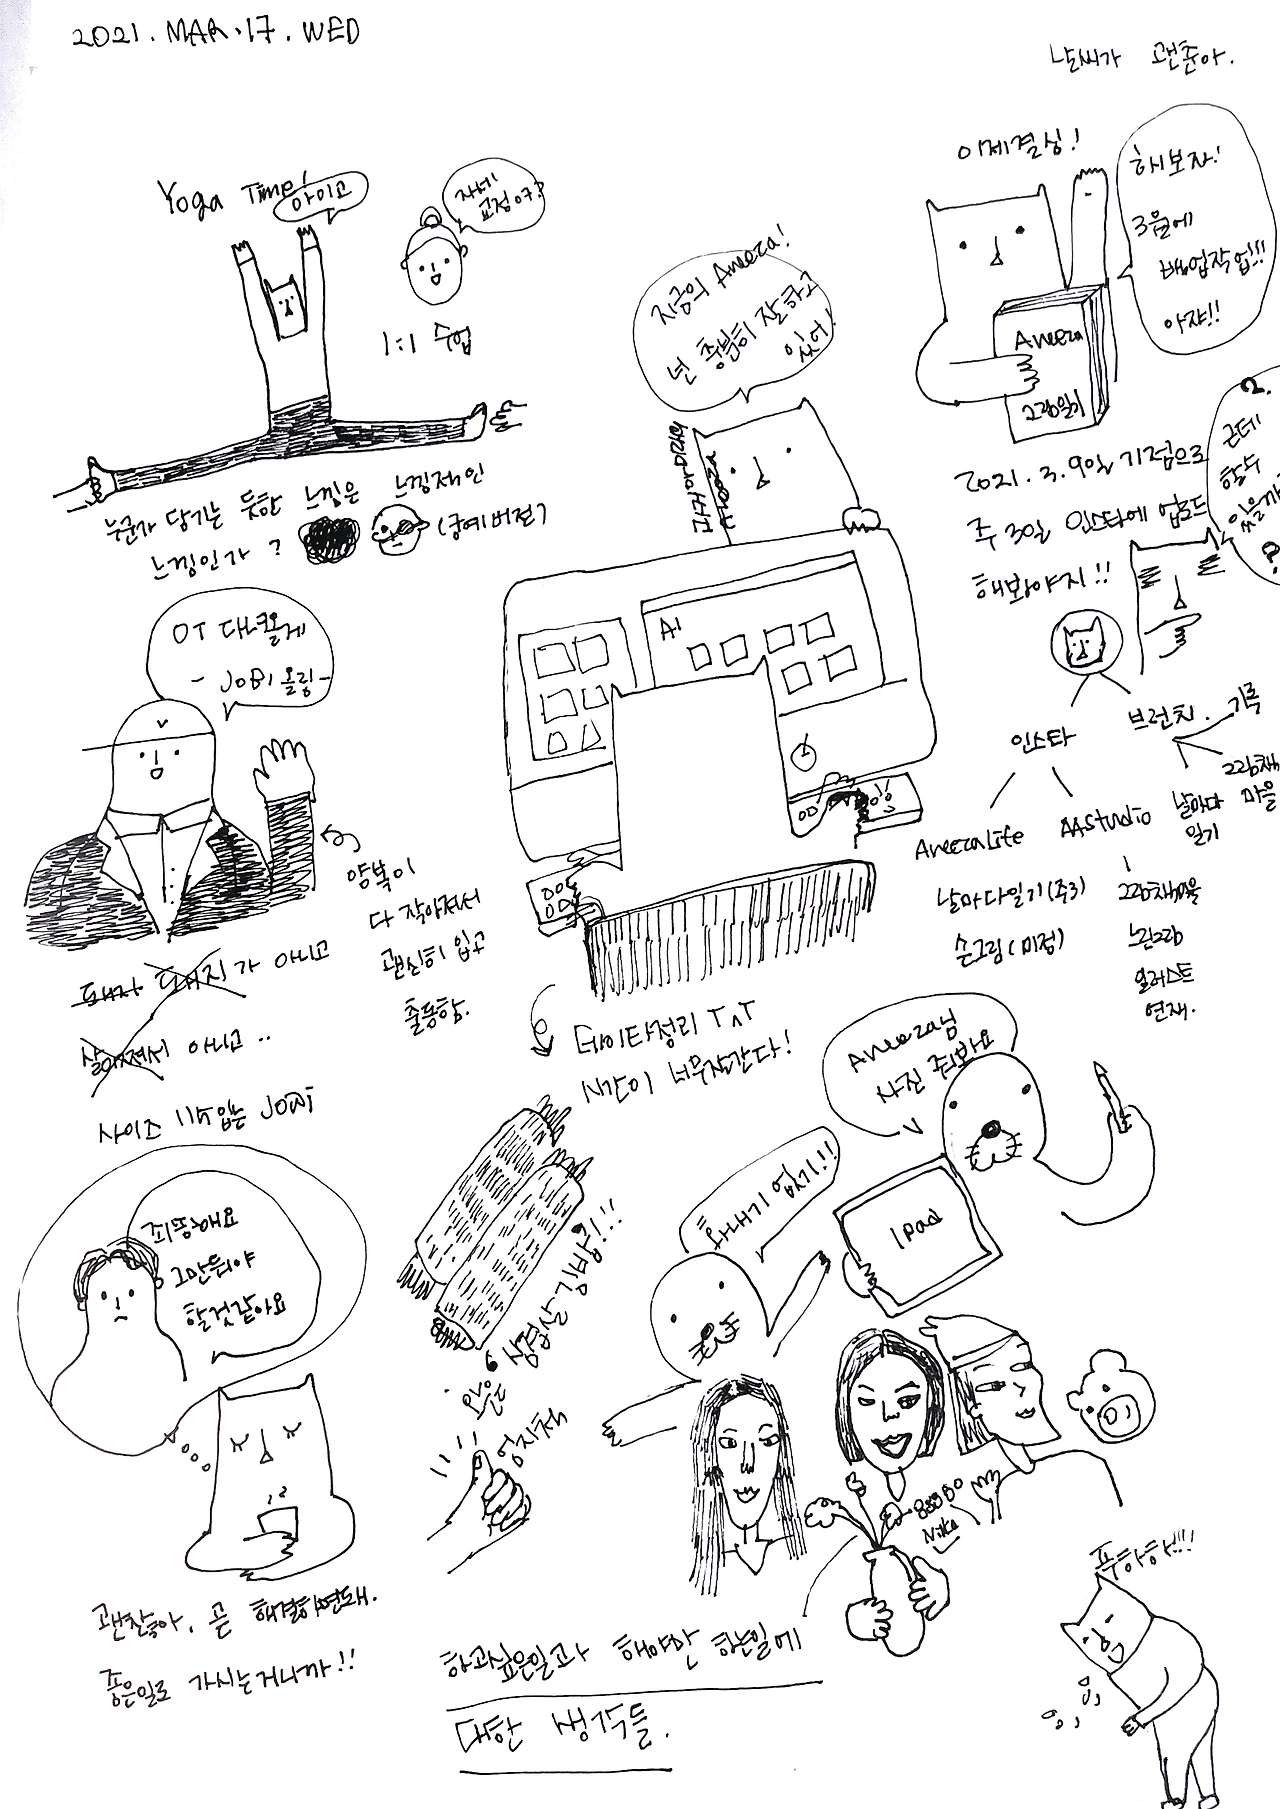 2021. MAR. 17. WED
날씨가 괜춘아.
Yoga Time!
아이고
자세
교정이쥬?
1:1 수업
누군가 당기는 듯한 느낌은 느낌적인
느낌인가?
(궁예버전?)
지금의 Aneeza!
넌 충분히 잘하고
있어!
Aneeza
이제결심!
해보자!
3월에
백업작업!!!
아쟈!!
Aneeza
그림일기
2021. 3. 9일 기점으로
주 3일 인스타에 업로드
해봐야지!!
근데
할수
있을까
?
인스타
브런치.
기록
그림책
마을
날마다
일기
AneezaLife
AAstudio
날마다일기(주3)
손그림(미정)
그림책마을
느린그림
일러스트
연재.
OT 다녀올게
- JOBI 올림-
양복이
다 작아져서
괜신히 입고
출동함.
돼지가 아니고
살이쪄서 아니고..
사이즈 바뀌었는 JOBI
AI
데이타정리 TㅅT
시간이 너무잘간다!
Aneeza님
사진 줘봐요
흉내내기 없기!!!
Ipad
죄쏭해요
그만둬야
할것같아요
괜찮아. 곧 해결하면돼.
좋은일로 가시는거니까!!
오은
엄지척
Nika
푸하하!!!
하고싶은일과 해야만 하는일에
대한 생각들.